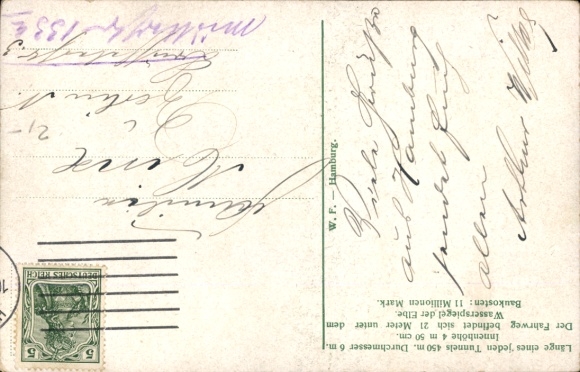 Länge eines jeden Tunnels 450 m. Durchmesser 6 m.
Innenhöhe 4 m 50 cm.
Der Fahrweg befindet sich 21 Meter unter dem
Wasserspiegel der Elbe.
Baukosten: 11 Millionen Mark.
Viele Grüße
aus Hamburg
sendet Euch
allen
Arthur
W. F. — Hamburg.
DEUTSCHES REICH
5
5
Familie
Berlin N.
2,-